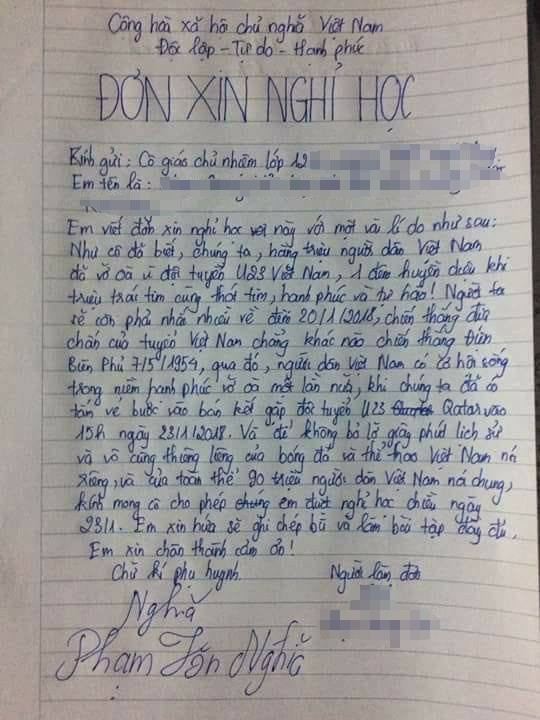 Cộng hoà xã hội chủ nghĩa Việt Nam
Độc lập - Tự do - Hạnh phúc
ĐƠN XIN NGHỈ HỌC
Kính gửi: Cô giáo chủ nhiệm lớp 12
Em tên là:
Em viết đơn xin nghỉ học này với một vài lí do như sau:
Như cô đã biết, chúng ta, hàng triệu người dân Việt Nam
đã vỡ oà vì đội tuyển U23 Việt Nam, 1 đêm huyền diệu khi
triệu trái tim cùng thót tim, hạnh phúc và tự hào! Người ta
sẽ còn phải nhắc nhiều về đêm 20/1/2018, chiến thắng đưa
chân của tuyển Việt Nam chẳng khác nào chiến thắng Điện
Biên Phủ 7/5/1954, qua đó, người dân Việt Nam có cơ hội sống
trong niềm hạnh phúc vỡ oà một lần nữa, khi chúng ta đã có
tấn vé bước vào bán kết gặp đội tuyển U23 Qatar vào
15h ngày 23/1/2018. Và để không bỏ lỡ giây phút lịch sử
và vô cùng thiêng liêng của bóng đá và thể thao Việt Nam nói
riêng, và của toàn thể 90 triệu người dân Việt Nam nói chung,
kính mong cô cho phép em được nghỉ học chiều ngày
23/1. Em xin hứa sẽ ghi chép bù và làm bài tập đầy đủ.
Em xin chân thành cảm ơn!
Chữ kí phụ huynh Người làm đơn
Nghĩa
Phạm Tấn Nghĩa